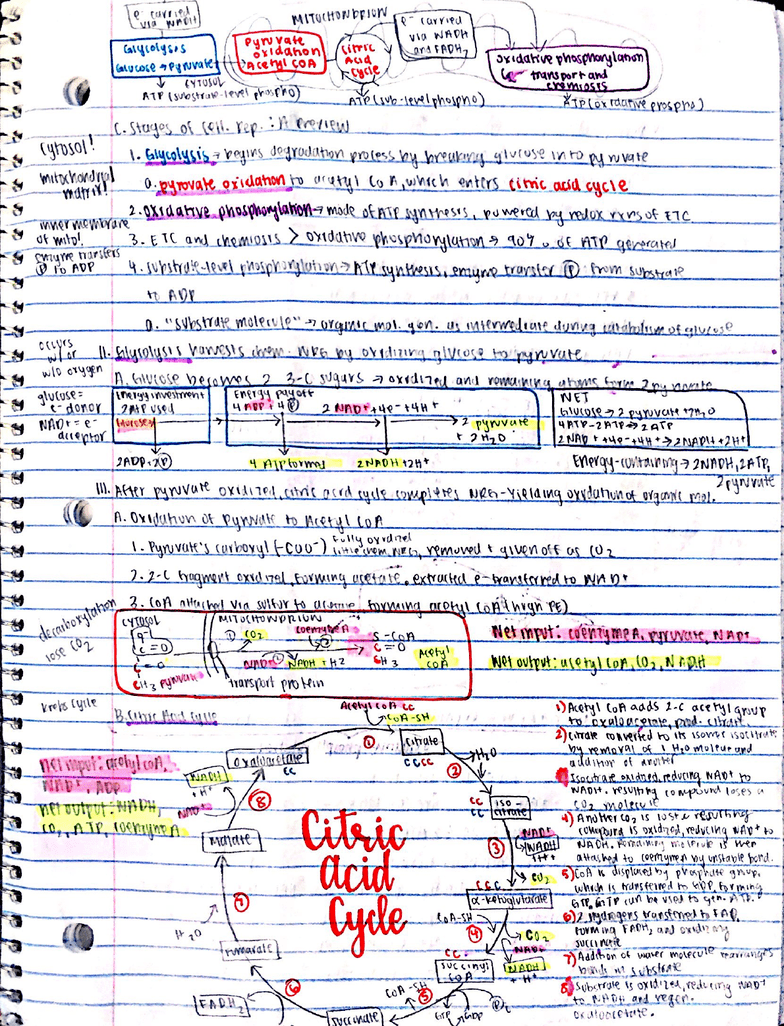 e⁻ carried via NADH
MITOCHONDRION
e⁻ carried via NADH and FADH₂
Glycolysis
Glucose → Pyruvate
Pyruvate oxidation
Acetyl COA
Citric Acid Cycle
oxidative phosphorylation
transport and chemiosis
CYTOSOL
ATP (substrate-level phospho)
ATP (sub-level phospho)
ATP (oxidative phospho)
C. Stages of Cell. Rep.: A preview
cytosol!
1. Glycolysis → begins degradation process by breaking glucose into pyruvate
mitochondrial matrix!
a. pyruvate oxidation to acetyl CoA, which enters citric acid cycle
2. oxidative phosphorylation → mode of ATP synthesis, powered by redox rxns of ETC
inner membrane of mito!
3. ETC and chemiosis > oxidative phosphorylation → 90% of ATP generated
enzyme transfers Ⓟ to ADP
4. substrate-level phosphorylation → ATP synthesis, enzyme transfer Ⓟ from substrate
to ADP
a. "substrate molecule" → organic mol. gen. as intermediate during catabolism of glucose
occurs w/ or w/o oxygen
II. Glycolysis harvests chem. NRG by oxidizing glucose to pyruvate
A. Glucose becomes 2 3-C sugars → oxidized and remaining atoms form 2 pyruvate
glucose = e⁻ donor
NAD+ = e⁻ acceptor
Energy Investment
2 ATP used
Glucose
2ADP + 2Ⓟ
Energy Payoff
4 ADP + 4Ⓟ
2 NAD+ + 4e- + 4H+
2 pyruvate
+ 2H₂O
4 ATP formed
2NADH + 2H+
NET
Glucose → 2 pyruvate + 2H₂O
4ATP - 2ATP → 2ATP
2NAD+ + 4e- + 4H+ → 2NADH + 2H+
Energy-containing → 2NADH, 2ATP,
2 pyruvate
III. After pyruvate oxidized, citric acid cycle completes NRG-yielding oxidation of organic mol.
A. Oxidation of Pyruvate to Acetyl CoA
1. Pyruvate's carboxyl (-COO⁻) fully oxidized little chem. NRG, removed + given off as CO₂
2. 2-C fragment oxidized, forming acetate, extracted e- transferred to NAD+
3. CoA attached via sulfur to acetate, forming acetyl CoA (high PE)
decarboxylation
lose CO₂
CYTOSOL
MITOCHONDRION
C=O
C=O
CH₃ pyruvate
① CO₂
coenzyme A
③
NAD+
②
NADH + H+
S-COA
C=O
CH₃
Acetyl COA
transport protein
Net input: coenzyme A, pyruvate, NAD+
Net output: acetyl CoA, CO₂, NADH
krebs cycle
B. Citric Acid Cycle
Net input: acetyl coA,
NAD+, ADP
Net output: NADH,
CO₂, ATP, coenzyme A
Citric
Acid
Cycle
Acetyl CoA CC
COA-SH
①
Citrate
CCCC
CC
②
H₂O
iso-citrate
CC
CC
③
NAD+
NADH
+ H+
CO₂
CCC
CC
α-ketoglutarate
COA-SH
④
CO₂
NAD+
NADH
+ H+
CC
CC
Succinyl COA
COA-SH
⑤
GTP
GDP
Pi
succinate
⑥
FADH₂
fumarate
⑦
H₂O
Malate
⑧
NAD+
NADH
+ H+
oxaloacetate
CC
1) Acetyl CoA adds 2-C acetyl group
to oxaloacetate, prod. citrate
2) Citrate converted to its isomer isocitrate
by removal of 1 H₂O molecule and
addition of another
Isocitrate oxidized, reducing NAD+ to
NADH. resulting compound loses a
CO₂ molecule
4) Another CO₂ is lost & resulting
compound is oxidized, reducing NAD+ to
NADH. remaining molecule is then
attached to coenzyme A by unstable bond.
5) CoA is displaced by phosphate group,
which is transferred to GDP, forming
GTP. GTP can be used to gen. ATP.
6) 2 hydrogens transferred to FAD,
forming FADH₂ and oxidizing
succinate
7) Addition of water molecule rearranges
bonds in substrate
8) Substrate is oxidized, reducing NAD+
to NADH and regen.
oxaloacetate.